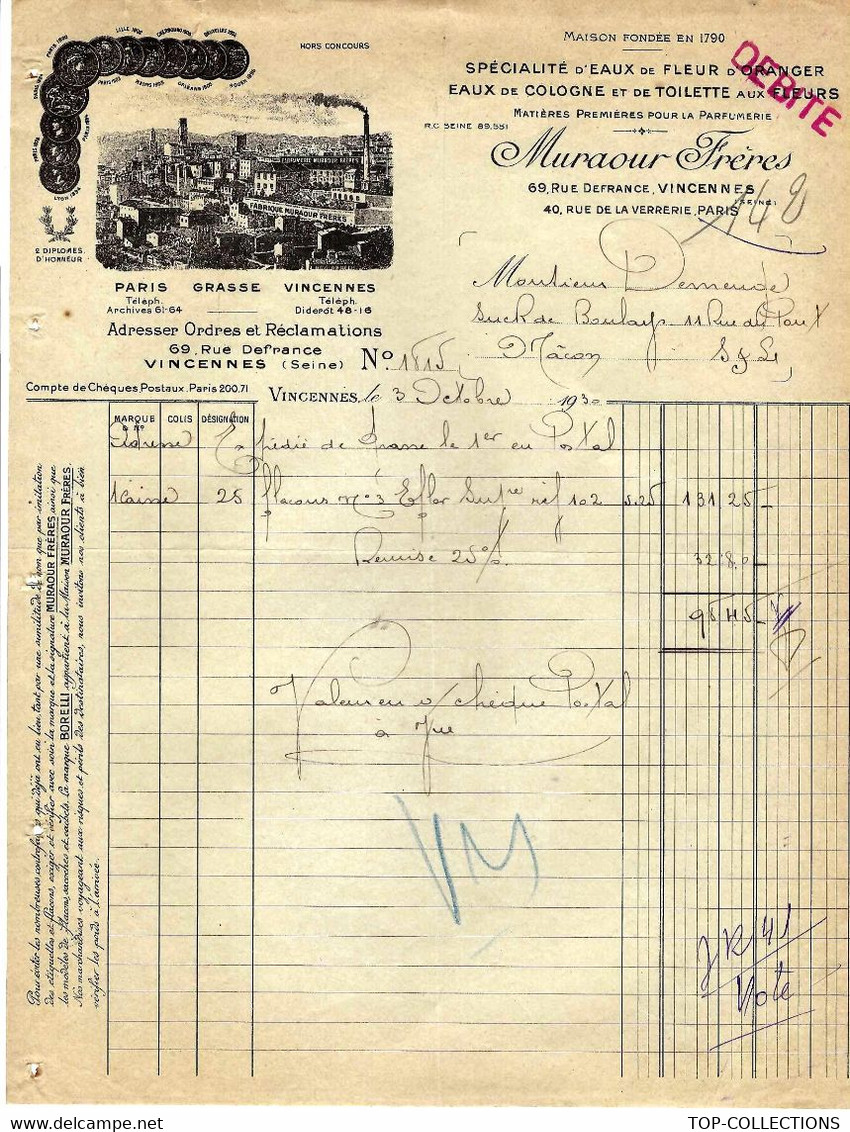 HORS CONCOURS
MAISON FONDÉE EN 1790
DEBITE
SPÉCIALITÉ D'EAUX DE FLEUR D'ORANGER
EAUX DE COLOGNE ET DE TOILETTE AUX FLEURS
MATIÈRES PREMIÈRES POUR LA PARFUMERIE
R.C. SEINE 89.551
Muraour Frères
69, RUE DEFRANCE, VINCENNES
(SEINE)
40, RUE DE LA VERRERIE, PARIS
148
PARFUMERIE MURAOUR FRÈRES
FABRIQUE MURAOUR FRÈRES
LYON 1894
2 DIPLOMES
D'HONNEUR
PARIS GRASSE VINCENNES
Téléph. Téléph.
Archives 61-64 Diderot 48-16
Adresser Ordres et Réclamations
69, Rue Defrance
VINCENNES (Seine)
No 1815
Monsieur Demeude
Suc de Boulay 11 Rue du Pont
Mâcon S & L
Compte de Chèques Postaux. Paris 200,71
VINCENNES, le 3 Octobre 1930
MARQUE & No COLIS DÉSIGNATION
Adresse Expédié de Grasse le 1er en Postal
1 Caisse 25 flacons No 3 Eflor Supre réf 102 5.25 131 25
Remise 25% 32 80
98 45
Valeur en v/ chèque Postal
à vue
VM
JR 41
Note
Pour éviter les nombreuses contrefaçons qui déjà ont eu lieu, tant par une similitude de nom que par imitation
des étiquettes et flacons, exiger et vérifier avec soin la marque et la signature MURAOUR FRÈRES ainsi que
les modèles de flacons, sacoches et cachets. La marque BORELLI appartient à la Maison MURAOUR FRÈRES.
Nos marchandises voyageant aux risques et périls des Destinataires, nous invitons nos clients à bien
vérifier les poids à l'arrivée.
TOP-COLLECTIONS